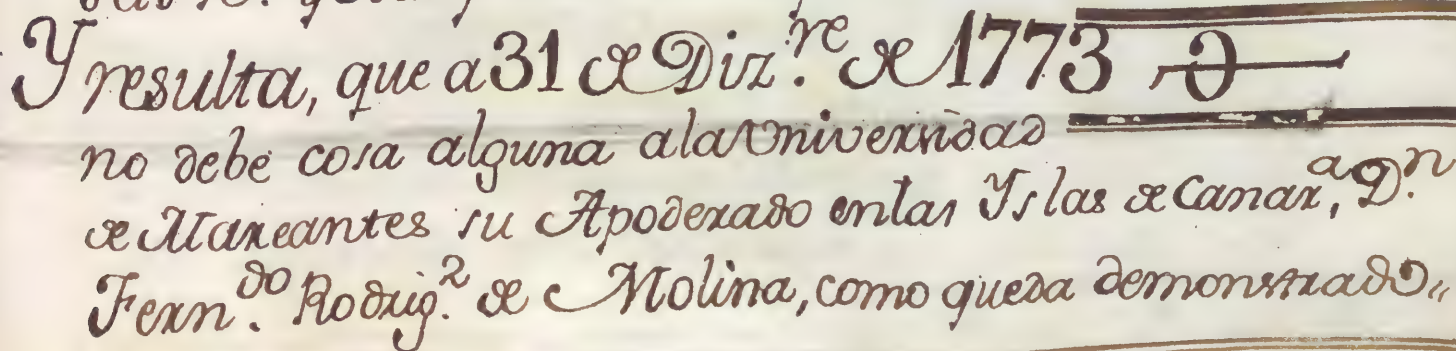 Y resulta, que a 31 de Diz.re de 1773 D
no debe cosa alguna a la Universidad
de Mareantes su Apoderado en las Yslas de Canar.a, D.n
Fern.do Rodrig.z de Molina, como queda demonstrado,,